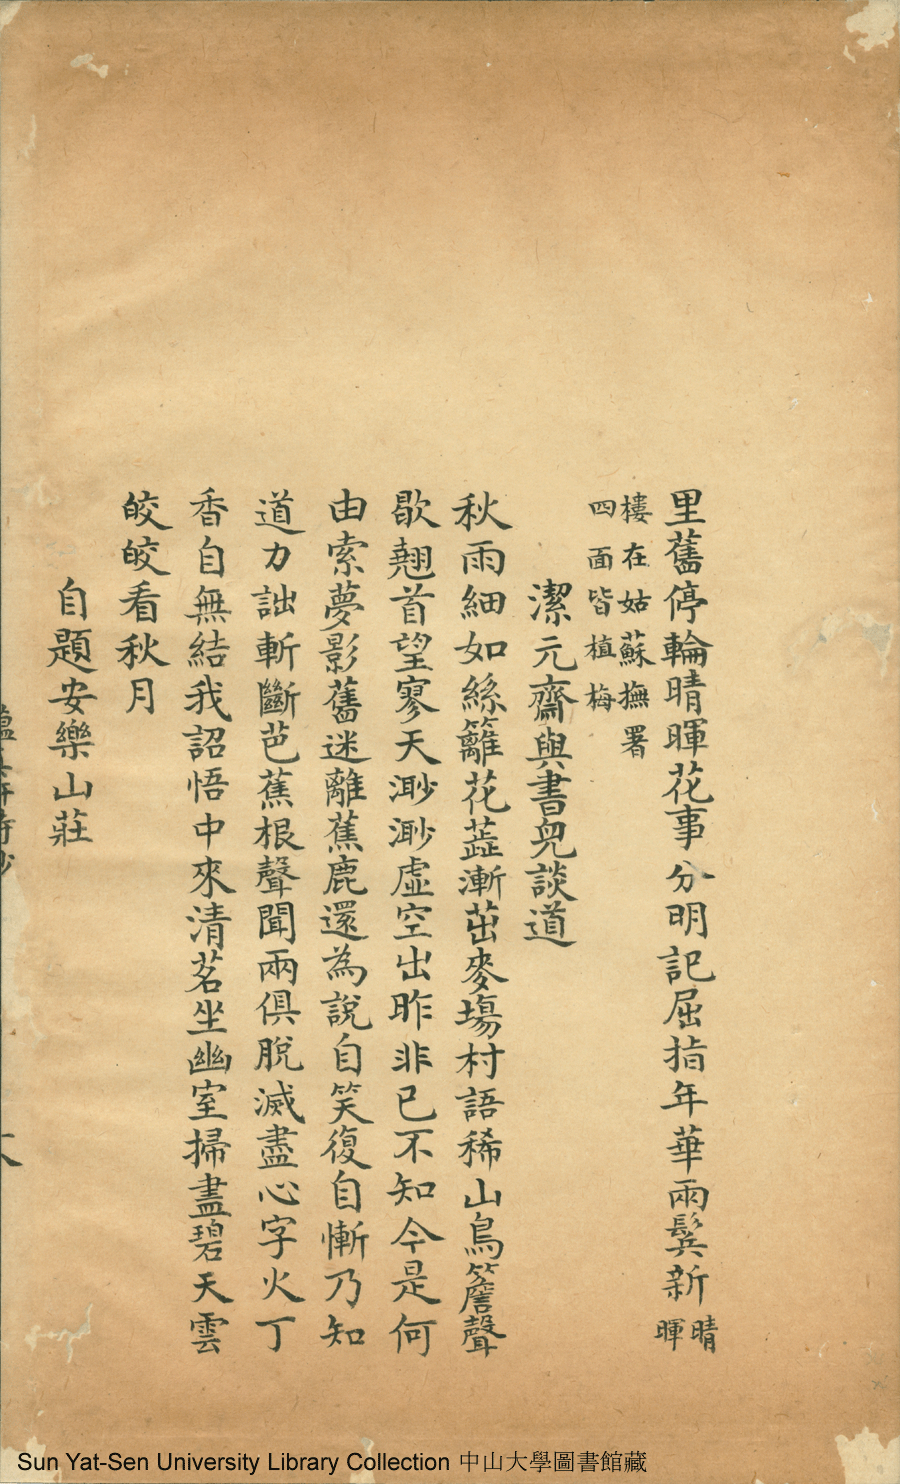 里舊停輪晴暉花事分明記屈指年華兩鬢新晴暉
樓在姑蘇撫署
四面皆植梅
潔元齋與書兒談道
秋雨細如絲籬花蕋漸茁麥塲村語稀山鳥簷聲
歇翹首望寥天渺渺虛空出昨非已不知今是何
由索夢影舊迷離蕉鹿還為說自笑復自慚乃知
道力詘斬斷芭蕉根聲聞兩俱脫滅盡心字火丁
香自無結我詔悟中來清茗坐幽室掃盡碧天雲
皎皎看秋月
自題安樂山莊
Sun Yat-Sen University Library Collection 中山大學圖書館藏